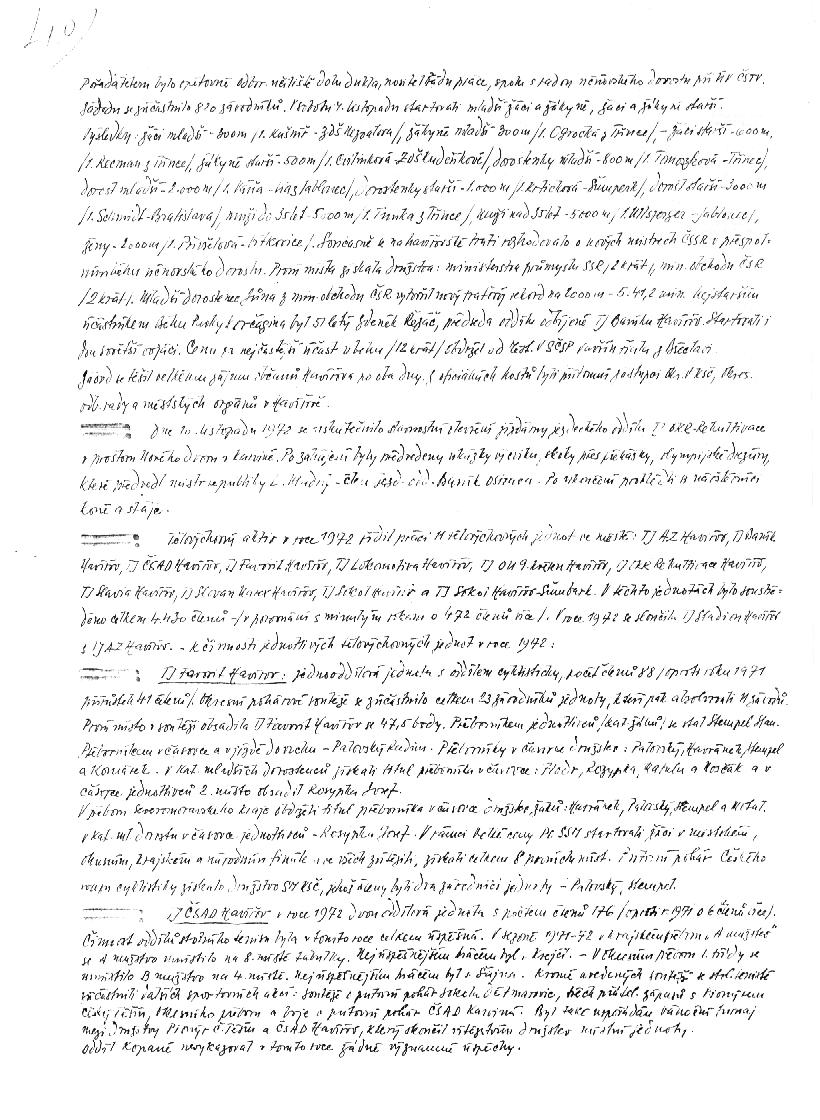 Pořadatelem bylo opětovně odbor. učiliště dolu Dukla, nositel Řádu práce, spolu s radou učňovského dorostu při ÚV ČSTV.
Závodu se zúčastnilo 820 závodníků. V sobotu 4. listopadu startovali mladší žáci a žákyně, žáci a žákyně starší.
Výsledky: žáci mladší - 800m /1. - ZDŠ /, žákyně mladší 300m /1. z Třince/, - žáci starší - 1000m,
/1. Recman z Třince/, žákyně starší - 500m /1. - ZDŠ /, dorostenky mladší - 800m /1. - Třinec/,
dorost mladší - 2000m /1. Váňa - Jablonec/, dorostenky starší - 1.000m /1. - Šumperk/, dorost starší - 3000m
/1. Schmidt - Bratislava/, muži do 35 let - 5000m /1. z Třince/, muži nad 35 let - 5000m /1. - Jablonec/,
ženy - 2000m /1. - Vítkovice/. Současně se na havířovské trati rozhodovalo o nových mistrech ČSSR v přespol-
ním běhu učňovského dorostu. První místa získala družstva: ministerstva průmyslu SSR /2 krát/, min. obchodu ČSR
/2 krát/. Mladší dorostenec z min. obchodu ČSR vytvořil nový traťový rekord na 2000m - 5.41,2 min. Nejstarším
účastníkem běhu byl 51 letý Zdeněk Řezáč, předseda oddílu odbíjené TJ Baníku Havířov. Startovali i
dva sovětští vojáci. Cenu za nejčastější účast v běhu /12 krát/ obdržel od SČSP z Břeclavi.
Závod se těšil velkému zájmu občanů Havířova po oba dny. Z oficiálních hostů byli přítomni zástupci Okr. V KSČ, Okres.
odb. rady a městských orgánů v Havířově.
Dne 10. listopadu 1972 se uskutečnilo slavnostní otevření jízdárny jezdeckého oddílu TJ OKR-Rekultivace
v prostoru Nového dvora v Karviné. Po zahájení byly předvedeny ukázky výcviku, skoky přes překážky, olympijské drezúry,
které předvedl mistr republiky L. - člen jezd. odd. Baník Ostrava. Po ukončení prohlédli si návštěvníci
koně a stáje.
Tělovýchovný aktiv v roce 1972 řídil práci 11 tělovýchovných jednot ve městě: TJ AZ Havířov, TJ Baník
Havířov, TJ ČSAD Havířov, TJ Favorit Havířov, TJ Lokomotiva Havířov, TJ OU 9. května Havířov, TJ OKR Rekultivace Havířov,
TJ Slavia Havířov, TJ Slovan Havířov, TJ Sokol Havířov a TJ Sokol Havířov-Šumbark. V těchto jednotách bylo soustře-
děno celkem 4.430 členů - /v porovnání s minulým rokem o 472 členů více/. V roce 1972 se sloučila TJ Stadion Havířov
s TJ AZ Havířov. - K činnosti jednotlivých tělovýchovných jednot v roce 1972:
TJ Favorit Havířov: jednooddílová jednota s oddílem cyklistiky, počet členů 88 /oproti roku 1971
přírůstek 41 členů/. Okresní pohárové soutěže se zúčastnilo celkem 23 závodníků jednoty, kteří pak absolvovali 11 závodů.
První místo v soutěži obsadila TJ Favorit Havířov se 47,5 body. Přeborníkem jednotlivců /kat. žáků/ se stal Stempel Stan.
Přeborníkem v časovce a v jízdě do vrchu - Palovský Rudin. Přeborníky v časovce družstev: Palovský, Havránek, Stempel
a Komárek. V kat. mladších dorostenců získali titul přeborníka v časovce: Flodr, Rozypka, Matula a Koščák a v
časovce jednotlivců 2. místo obsadil Rosypka Josef.
V přeboru Severomoravského kraje obdrželi titul přeborníka v časovce družstev žáků: Havránek, Palovský, Stempel a
v kat. ml. dorostu v časovce jednotlivců - Rosypka Josef. V rámci Velké ceny PO SSM startovali žáci v místním,
okresním, krajském a národním finále a ve všech soutěžích získali celkem 8 prvních míst. Putovní pohár Českého
svazu cyklistiky získalo družstvo SM KSČ, jehož členy byli dva závodníci jednoty - Palovský, Stempel.
TJ ČSAD Havířov v roce 1972 dvouoddílová jednota s počtem členů 176 /oproti r. 1971 o 6 členů více/.
Činnost oddílu stolního tenisu byla v tomto roce celkem úspěšná. V sezoně 1971-72 v krajském přeboru „A mužstev“
se A mužstvo umístilo na 8. místě tabulky. Nejúspěšnějším hráčem byl s. Krejčí. - V Okresním přeboru 1. třídy se
umístilo B mužstvo na 4. místě. Nejúspěšnějším hráčem byl s. Šnajnar. Kromě uvedených soutěží se stol. tenisté
zúčastnili dalších sportovních akcí: soutěže o putovní pohár Sokola Dětmarovic, třech přátel. zápasů s Pionýrem
Český Těšín, Okresního přeboru a boje o putovní pohár ČSAD Karviná. Byl také uspořádán vánoční turnaj
mezi družstvy Pionýr Č. Těšín a ČSAD Havířov, který skončil vítězstvím družstev místní jednoty.
Oddíl kopané nevykazoval v tomto roce žádné významné úspěchy.